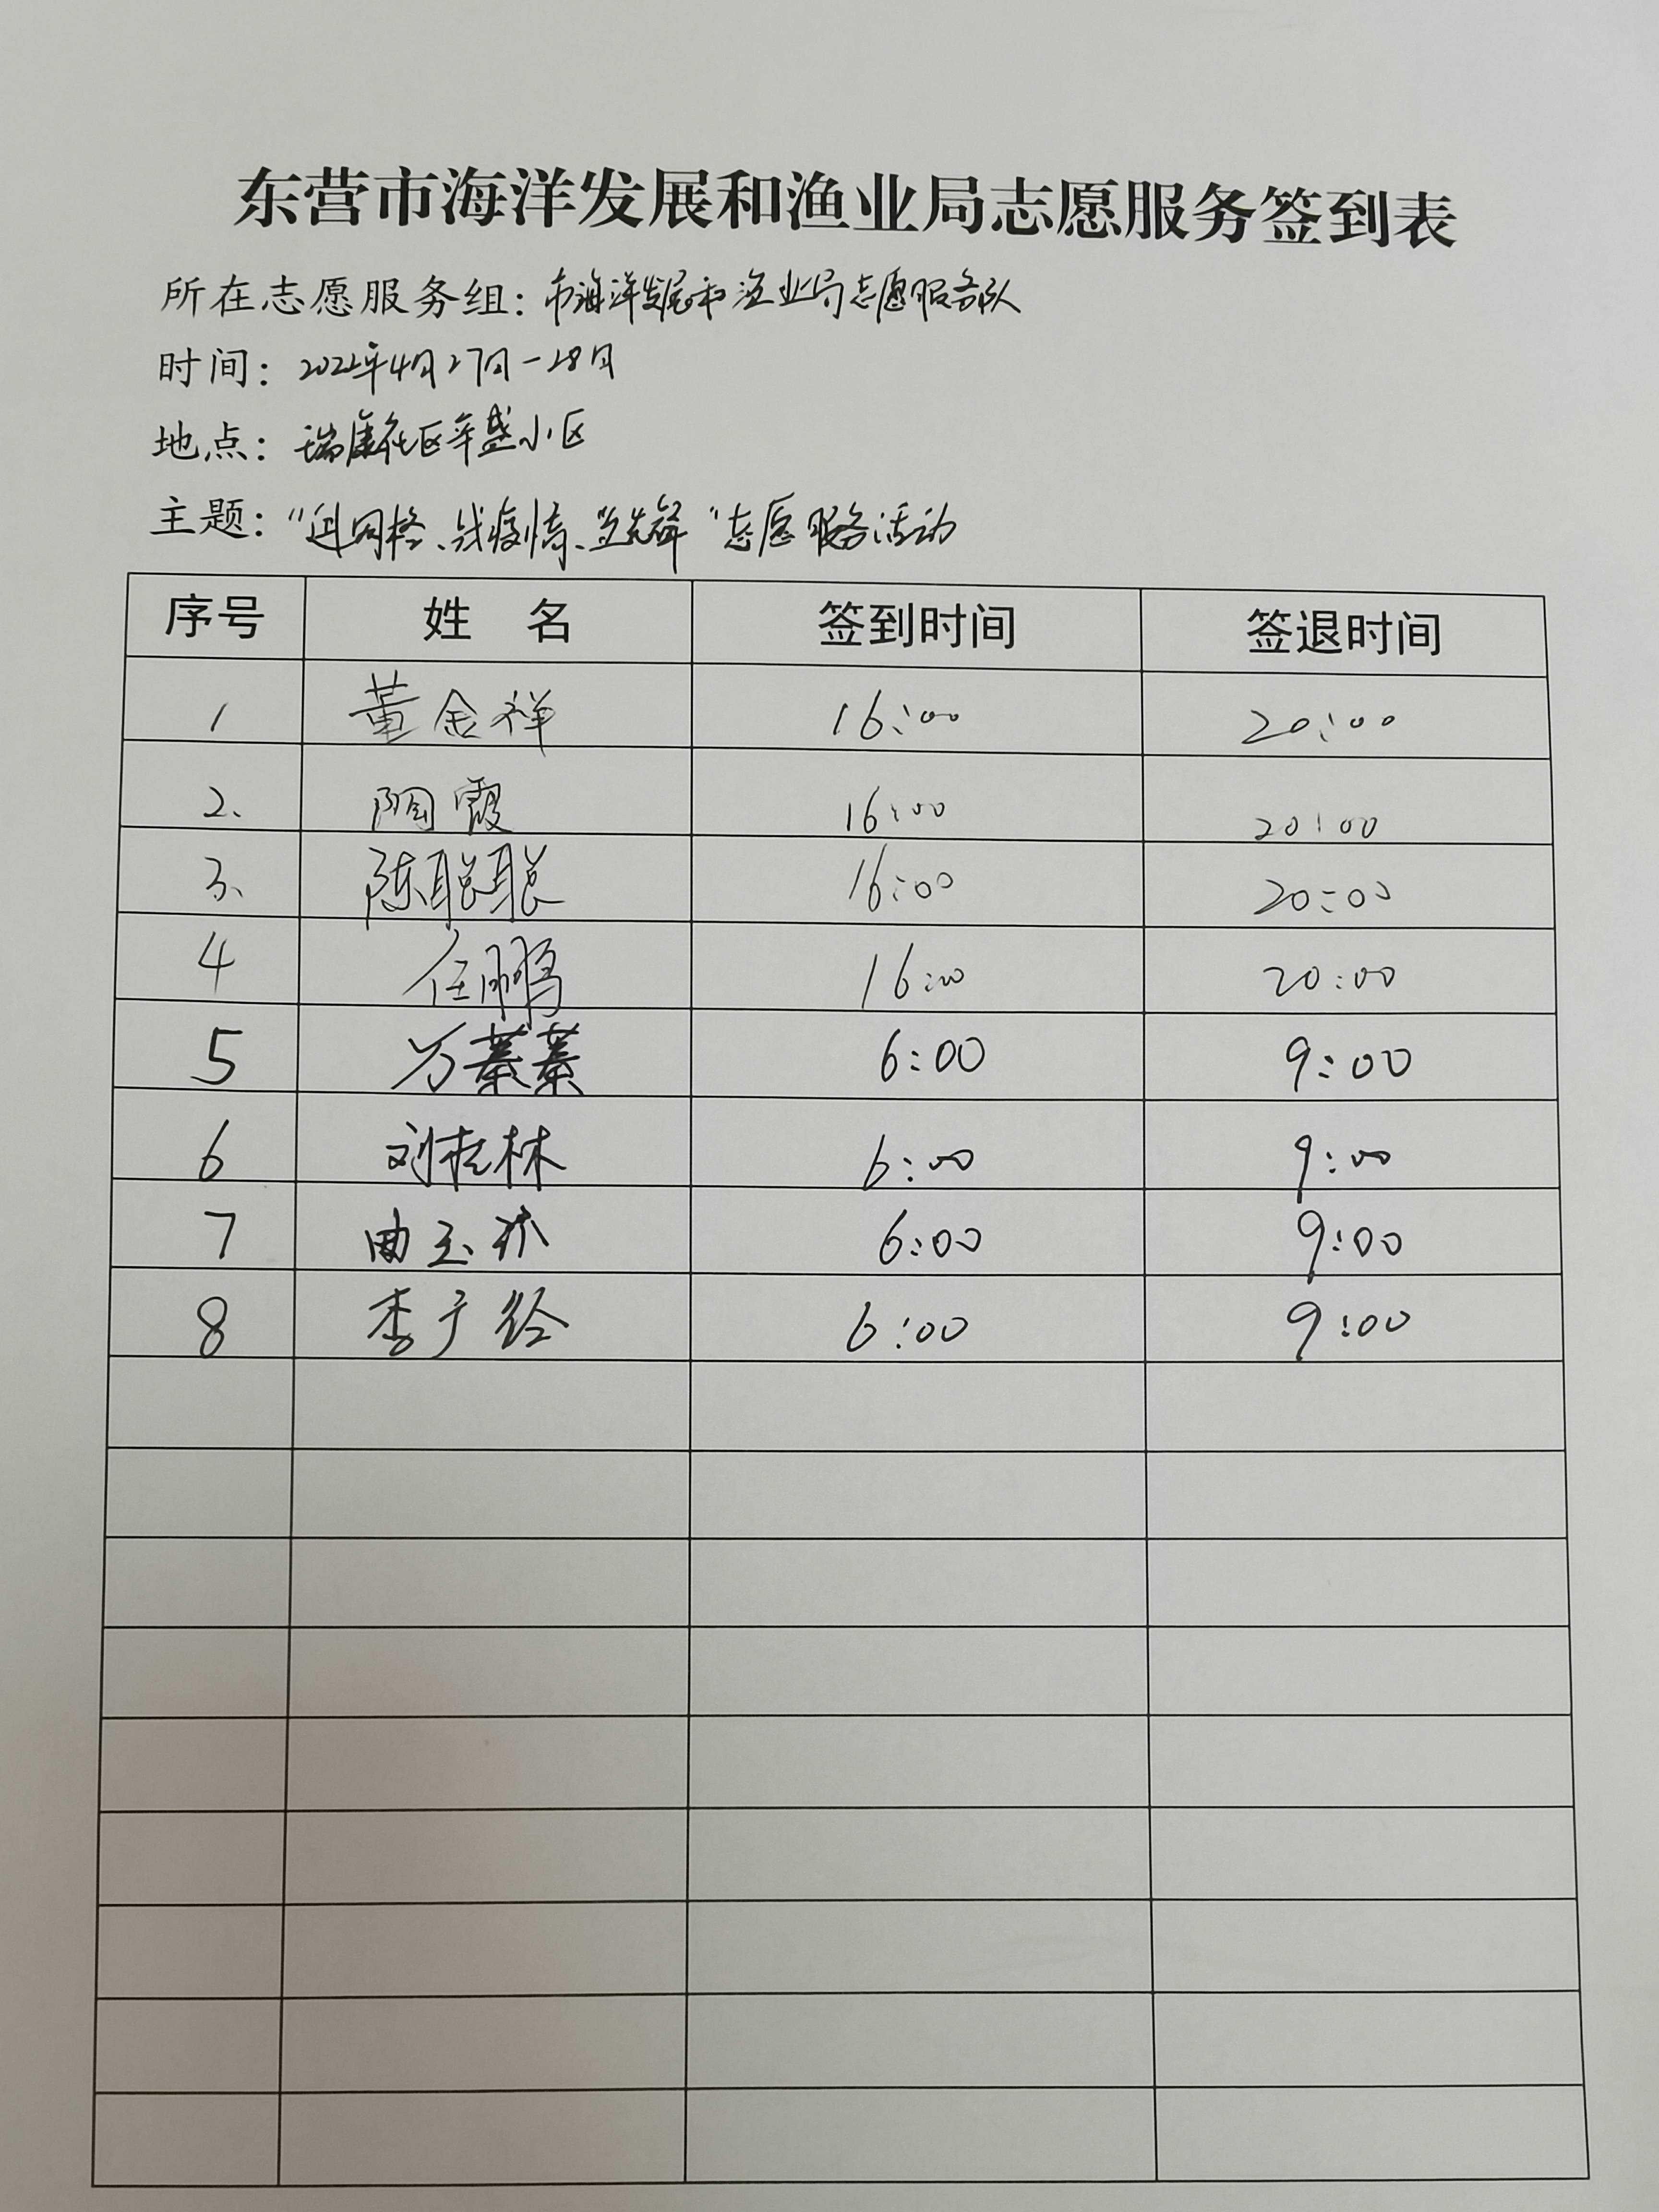 东营市海洋发展和渔业局志愿服务签到表
所在志愿服务组：市海洋发展和渔业局志愿服务队
时间：2022年4月27日-28日
地点：瑞康社区辛盛小区
主题："进网格、战疫情、当先锋"志愿服务活动
序号 姓 名 签到时间 签退时间
1 董金祥 16:00 20:00
2、 陶霞 16:00 20:00
3、 陈聪聪 16:00 20:00
4 任鹏 16:00 20:00
5 万蓁蓁 6:00 9:00
6 刘桂林 6:00 9:00
7 曲玉 6:00 9:00
8 李广经 6:00 9:00